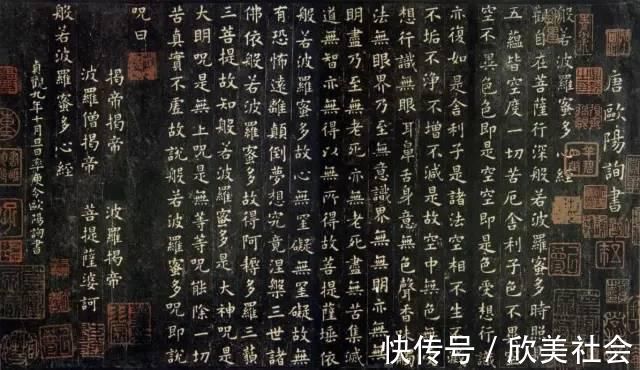 唐歐陽詢書
般若波羅蜜多心經
觀自在菩薩行深般若波羅蜜多時照
五蘊皆空度一切苦厄舍利子色不異
空空不異色色即是空空即是色受想行
亦復如是舍利子是諸法空相不生不
不垢不淨不增不減是故空中無色無
想行識無眼耳鼻舌身意無色聲香味
法無眼界乃至無意識界無無明亦無無
明盡乃至無老死亦無老死盡無苦集滅
道無智亦無得以無所得故菩提薩埵依
般若波羅蜜多故心無罣礙無罣礙故無
有恐怖遠離顛倒夢想究竟涅槃三世諸
佛依般若波羅蜜多故得阿耨多羅三藐
三菩提故知般若波羅蜜多是大神呪是
大明呪是無上呪是無等等呪能除一切
苦真實不虛故說般若波羅蜜多呪即說
呪曰
揭帝揭帝 波羅揭帝
波羅僧揭帝 菩提薩婆訶
般若波羅蜜多心經
貞觀九年十月旦日率更令歐陽詢書
快传号/欣美社会